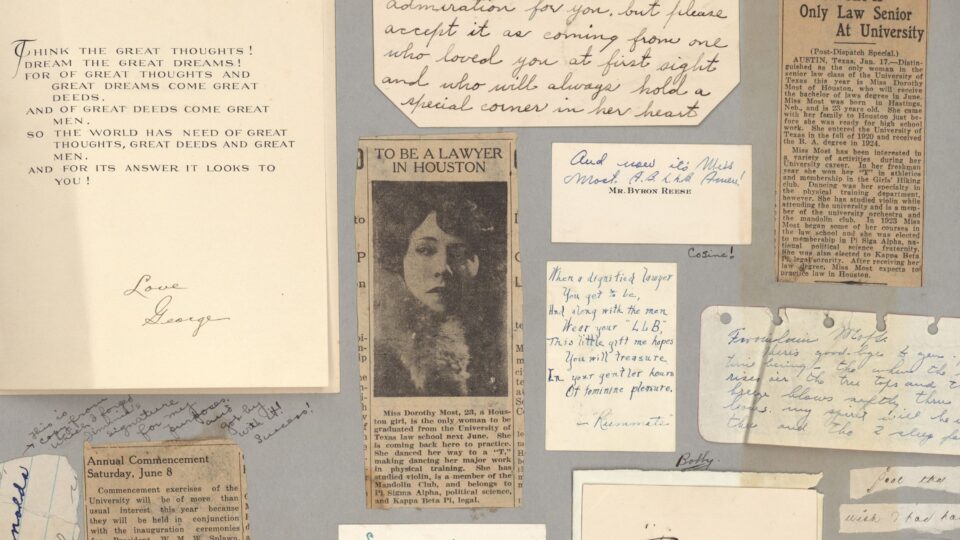 THINK THE GREAT THOUGHTS!
DREAM THE GREAT DREAMS!
FOR OF GREAT THOUGHTS AND
GREAT DREAMS COME GREAT
DEEDS,
AND OF GREAT DEEDS COME GREAT
MEN.
SO THE WORLD HAS NEED OF GREAT
THOUGHTS, GREAT DEEDS AND GREAT
MEN.
AND FOR ITS ANSWER IT LOOKS TO
YOU!
Love
George
admiration for you, but please
accept it as coming from one
who loved you at first sight
and who will always hold a
special corner in her heart
Only Law Senior
At University
(Post-Dispatch Special.)
AUSTIN, Texas, Jan. 17.—Distin-
guished as the only woman in the
senior law class of the University of
Texas this year is Miss Dorothy
Most of Houston, who will receive
the bachelor of laws degree in June.
Miss Most was born in Hastings,
Neb., and is 23 years old. She came
with her family to Houston just be-
fore she was ready for high school
work. She entered the University of
Texas in the fall of 1920 and received
the B. A. degree in 1924.
Miss Most has been interested in
a variety of activities during her
University career. In her freshman
year she won her "T" in athletics
and membership in the Girls' Hiking
club. Dancing was her specialty in
the physical training department,
however. She has studied violin while
attending the university and is a mem-
ber of the university orchestra and
the mandolin club. In 1923 Miss
Most began some of her courses in
the law school and she was elected
to membership in Pi Siga Alpha, na-
tional political science fraternity.
She was also elected to Kappa Beta
Pi, legal sorority. After receiving her
law degree, Miss Most expects to
practice law in Houston.
TO BE A LAWYER
IN HOUSTON
Miss Dorothy Most, 23, a Hous-
ton girl, is the only woman to be
graduated from the University of
Texas law school next June. She
is coming back here to practice.
She danced her way to a "T,"
making dancing her major work
in physical training. She has
studied violin, is a member of the
Mandolin Club, and belongs to
Pi Sigma Alpha, political science,
and Kappa Beta Pi, legal.
And now it's Miss
Most A.B. L.L.B. Amen!
MR. BYRON REESE
Cosine!
When a dignified lawyer
You get to be,
And along with the men
Wear your "LLB",
This little gift me hopes
You will treasure
In your gentler hours
Of feminine pleasure.
"Riummate"
Bobby
this is
from
signature
for my
purposes.
got by
with it!
Success!
Annual Commencement
Saturday, June 8
Commencement exercises of the
University will be of more than
usual interest this year because
they will be held in conjunction
with the inauguration ceremonies
for President W. M. W. Splawn,
good-bye to you
when the
rises o'er the tree tops and
breeze blows softly, thru
my spirit will be
the and the
nolds
feel that
wish I had